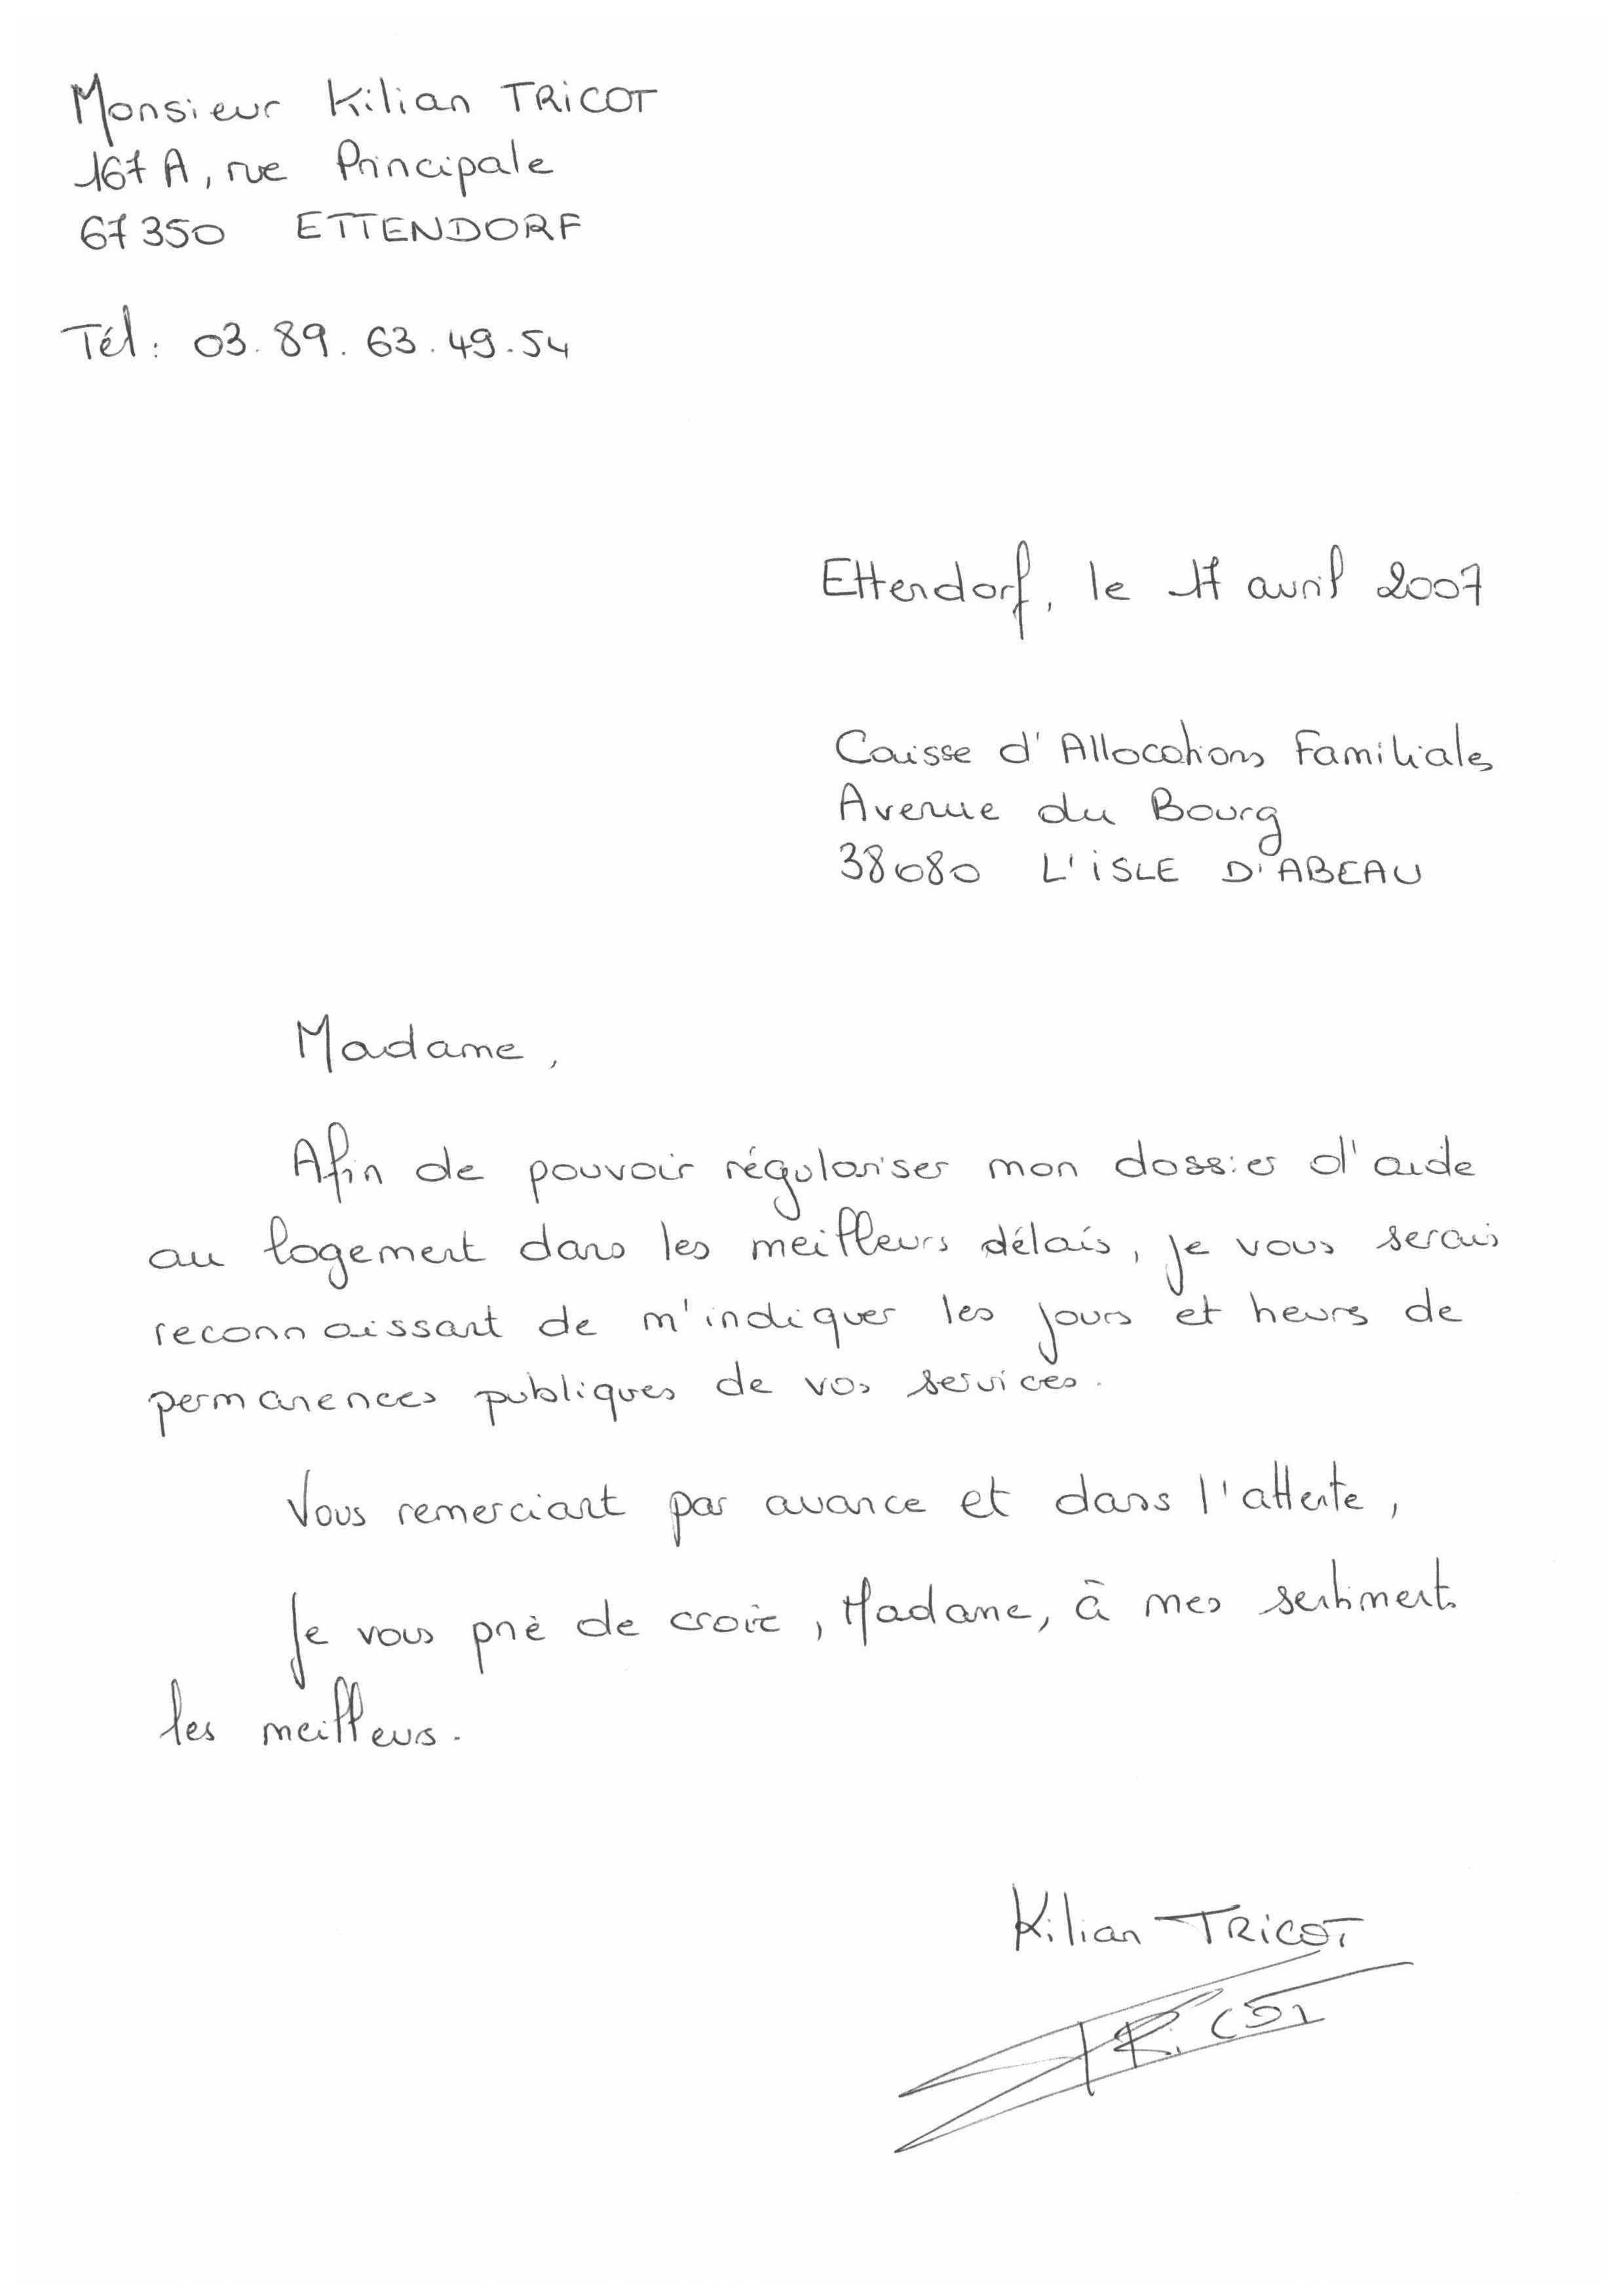 Monsieur Kilian TRICOT
167 A, rue Principale
67350 ETTENDORF
Tél: 03.89.63.49.54
Ettendorf, le 17 avril 2007
Caisse d'Allocations Familiales
Avenue du Bourg
38080 L'ISLE D'ABEAU
Madame,
Afin de pouvoir régulariser mon dossier d'aide
au logement dans les meilleurs délais, je vous serais
reconnaissant de m'indiquer les jours et heures de
permanences publiques de vos services.
Vous remerciant par avance et dans l'attente,
Je vous prie de croire, Madame, à mes sentiments
les meilleurs.
Kilian TRICOT
TRICOT